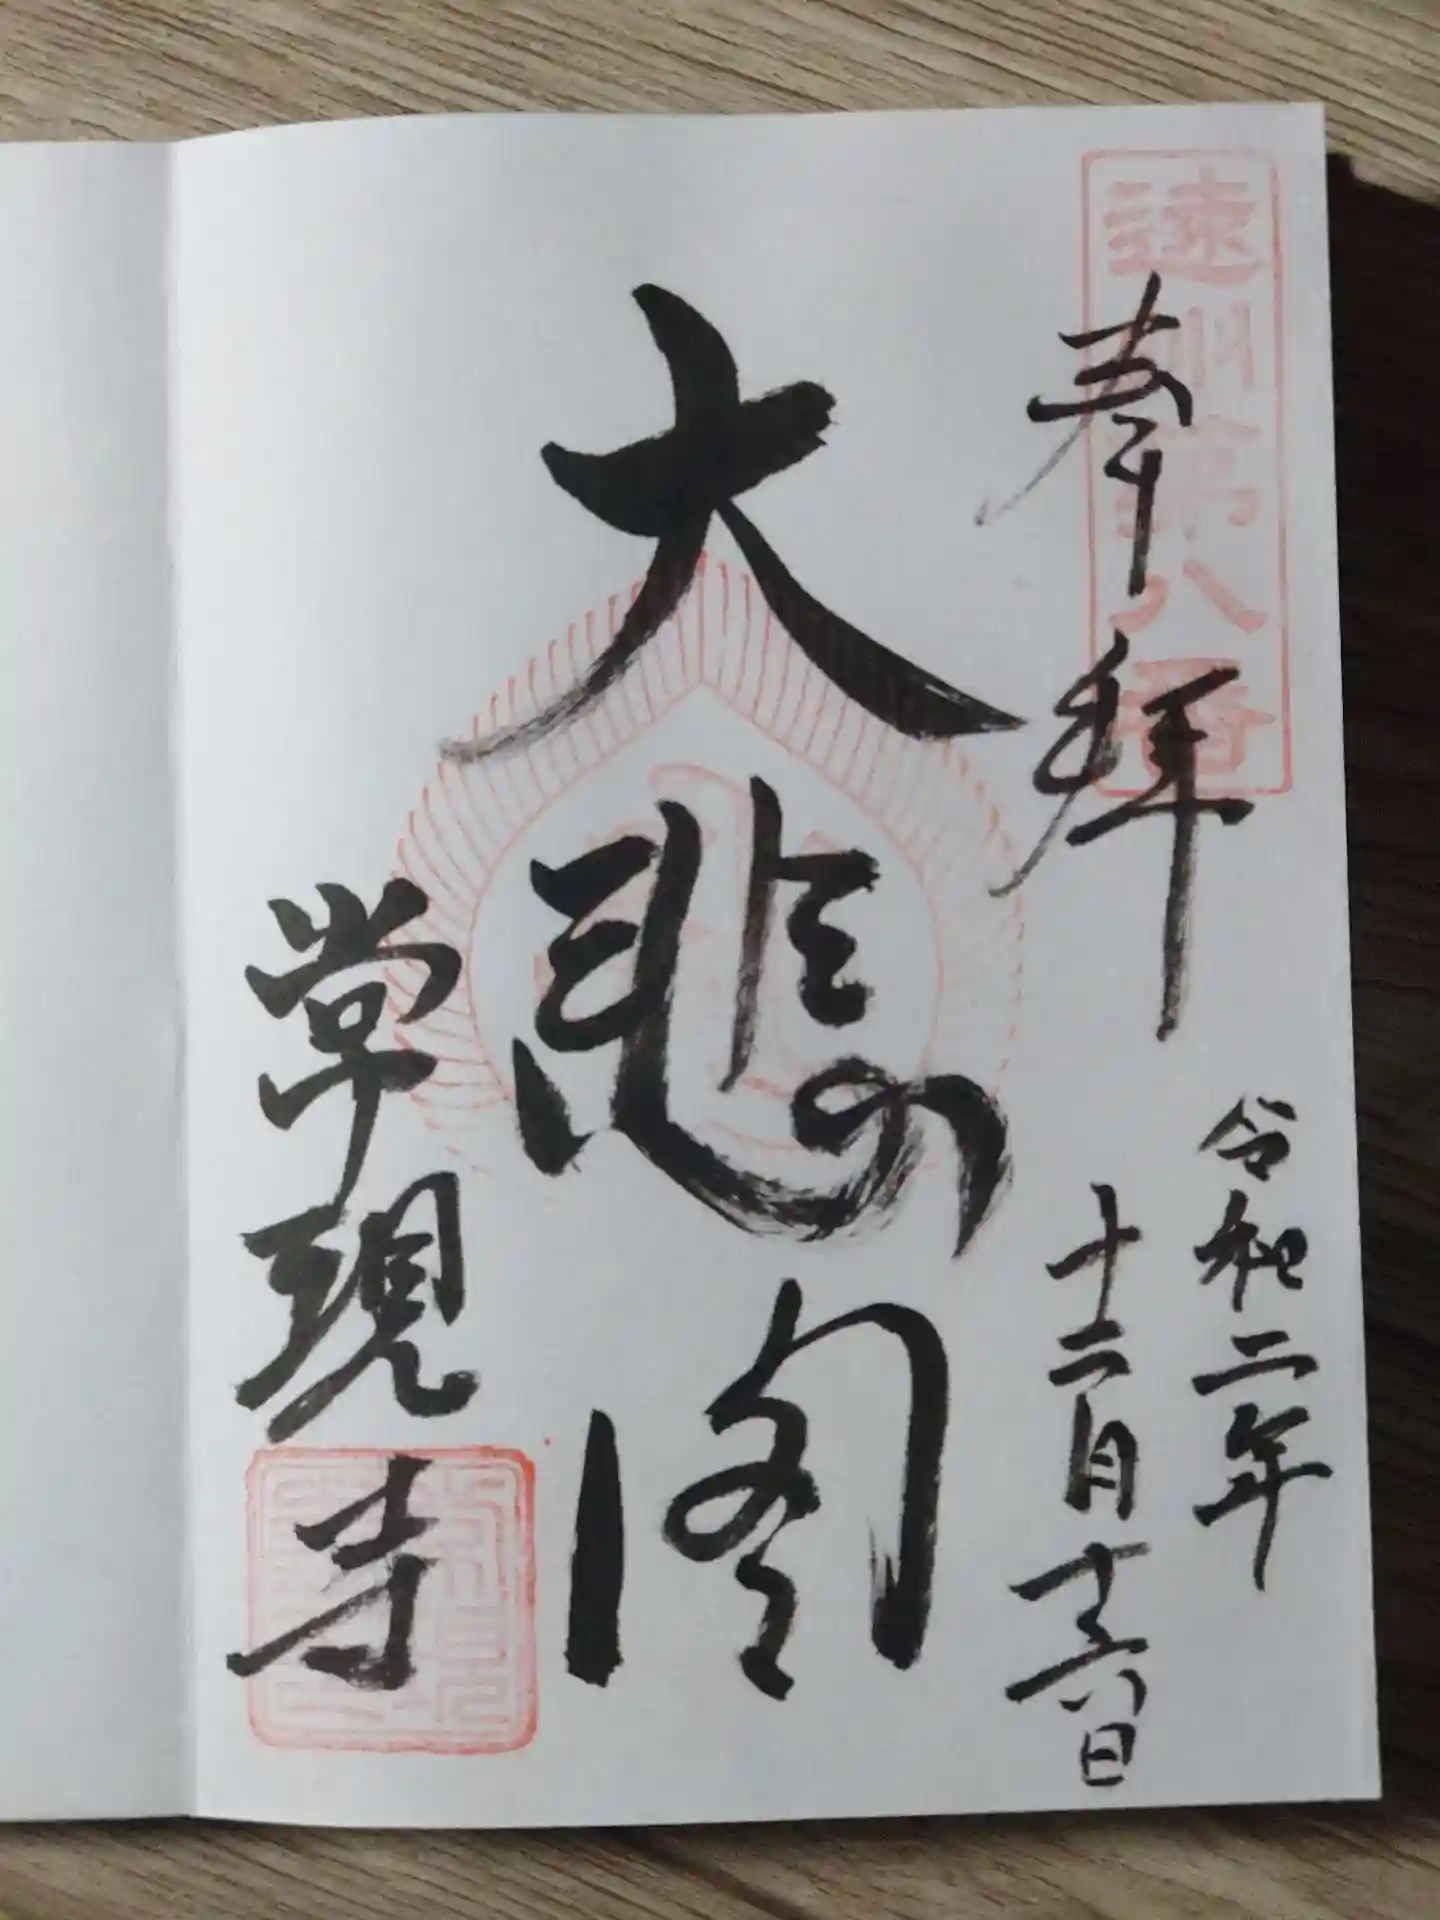 遠州第八番
奉拝
令和二年
十二月十六日
大悲閣
常現寺